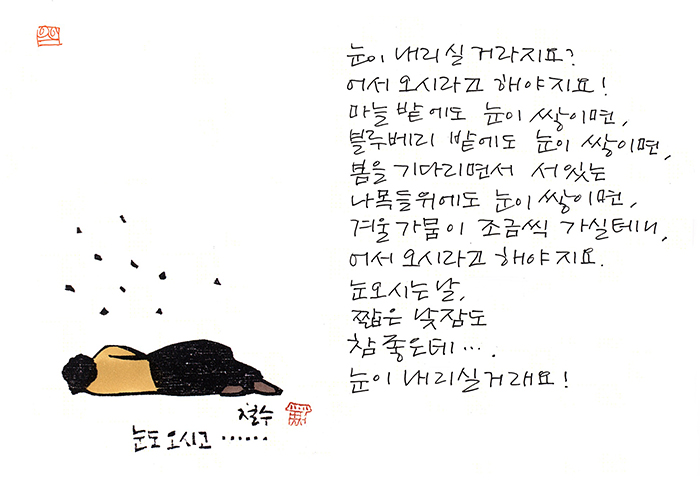 눈이 내리실 거라지요?
어서 오시라고 해야지요!
마늘 밭에도 눈이 쌓이면,
블루베리 밭에도 눈이 쌓이면,
봄을 기다리면서 서있는
나목들위에도 눈이 쌓이면,
겨울가뭄이 조금씩 가실테니,
어서 오시라고 해야지요.
눈오시는날,
짧은 낮잠도
참 좋은데….
눈이 내리실거래요!
철수
눈도 오시고 ……